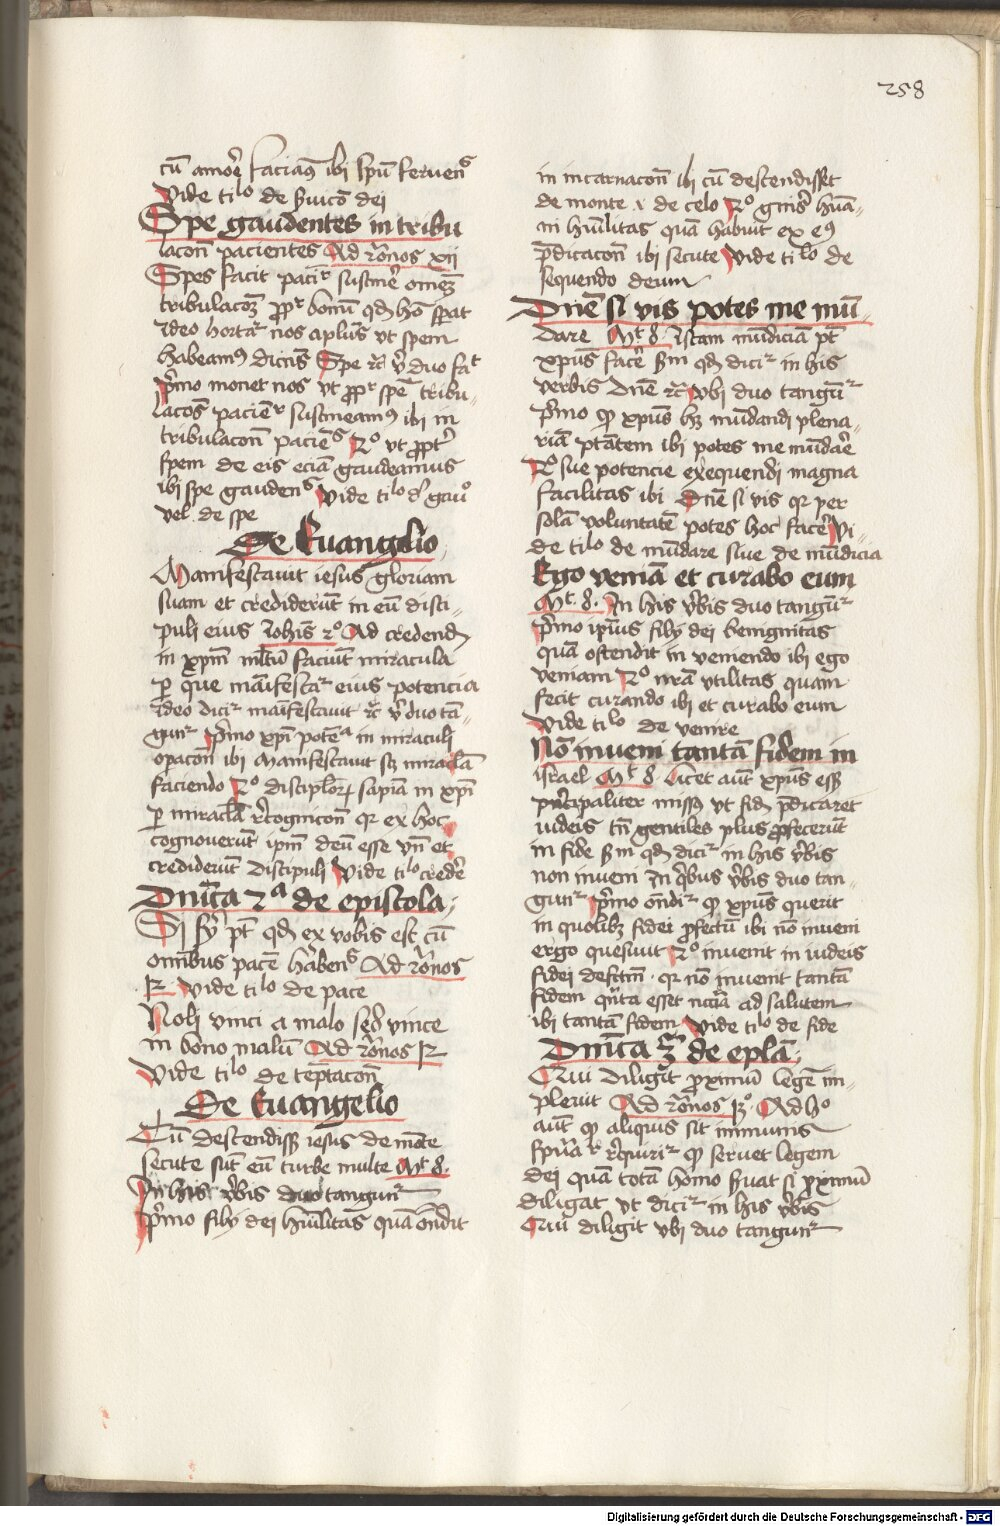 258
cū amōre faciam9 ibi spū feruens
Vide tilo de ẜuicō dei
Spe gaudentes in tribu
lacōn pacientes Ad rōnos xii
Spes facit pacir sustinēr omēz
tribulacōz ppr bonū qd hō sperat
Ideo hortar nos aplus vt spem
habeam9 dicēs Spe rc̄ vbi duo fat
pimo monet nos vt ppr spē tribu-
lacōēs pacienr sustineam9 ibi in
tribulacōn paciēs 2o vt pptr
spem de eis eciā gaudeamus
ibi spe gaudens Vide tilo de gauo
vel de spe
De Euangelio
Manifestauit iesus gloriam
suam et crediderūt in eū disci-
puli eius Iohis 2o Ad credend
in xpm mltū faciūt miracula
p que manifestar eius potencia
Ideo dicir manifestauit rc̄ vbi duo tā-
gunr pimo xpi potēa in miraculi
opacōn ibi Manifestauit sz miraclā
faciendo 2o discipulor sapiā in xpi
p miracla recognicōn qr ex hoc
cognouerūt ipm deū esse vn et
crediderūt discipuli Vide tilo credēr
Dnica 2a de epistola
Si fi pt qd ex vobis est cū
omibus pacē habens Ad rōnos
12 Vide tilo de pace
Noli vinci a malo sed vince
in bono malū Ad rōnos 12
Vide tilo de teptacōn
De Euangelio
Cū descendiss iesus de mōte
secute sūt eū turbe multe Mt 8.
In his vbis duo tangunr
pimo filij dei humilitas quā ondit
in incarnacōn ibi cū descendisset
de monte i de celo 2o gnis huā-
ni hūilitas quā habuit ex ei9
pdicacōn ibi secute Vide tilo de
sequendo deum
Dnē si vis potes me mū-
dare Mt 8 Istam mūdiciā pt
xpus facē ẜm qd dicir in his
verbis Dnē rc̄ vbi duo tangūr
pimo qp xpus hz mūdandi plena-
riā ptātem ibi potes me mūdaē
2o sue potencie exequendi magna
facilitas ibi Dnē si vis qr per
solā voluntatē potes hoc facē Vi-
de tilo de mūdare siue de mūdicia
Ego veniā et curabo eum
Mt. 8. In his vbis duo tangūr
pimo ipius filij dei benignitas
quā ostendit in veniendo ibi ego
veniam 2o nrā vtilitas quam
fecit curando ibi et curabo eum
Vide tilo de venire
Nō inueni tantā fidem in
israel Mt 8 Licet aūt xpus ess
pncipaliter miss9 vt fidē pdicaret
iudeis tn gentiles plus pfecerūt
in fide ẜm qd dicir in his vbis
non inueni In qbus vbis duo tan-
gunr pimo ondir qp xpus querit
in quolibz fidei pfectū ibi nō inueni
ergo quesiuit 2o inuenit in iudeis
fidei defctm qr nō inuenit tantā
fidem qnta esset ncīa ad salutem
ibi tantā fidem Vide tilo de fide
Dnica 3a de eplā
Qui diligit pximū legē im-
pleuit Ad rōnos 13o. Ad ho
aūt qp aliquis sit immunis
requirir qp seruet legem
dei quā totā homo ẜuat si pximū
diligat vt dicir in his vbis
Qui diligit vbi duo tangunr
Digitalisierung gefördert durch die Deutsche Forschungsgemeinschaft - DFG